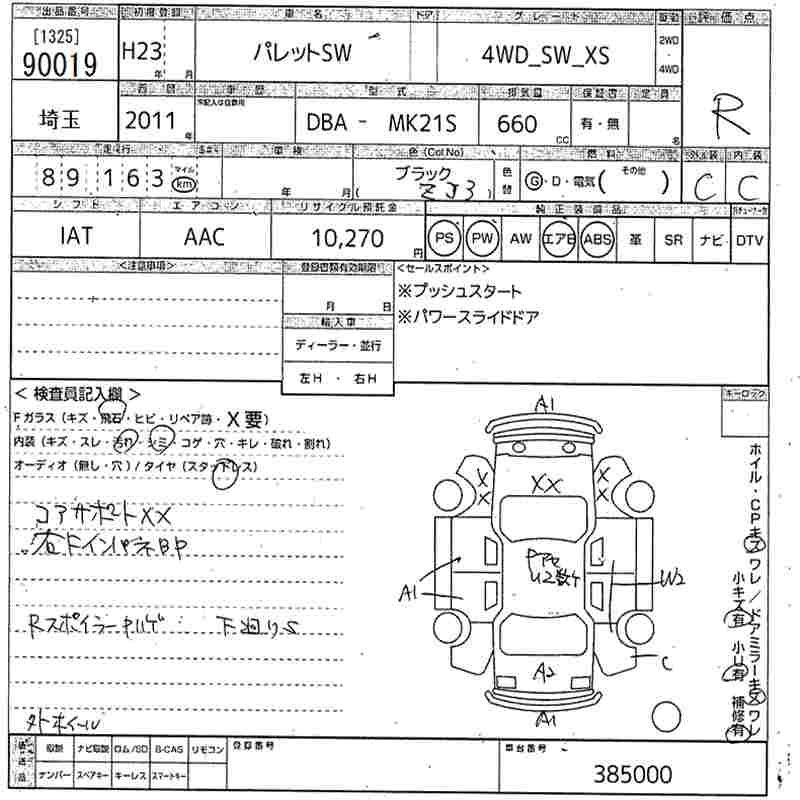 出品番号 初度登録 車名 ドア グレード 駆動 評価点
[1325]
90019 H23 年 月 パレットSW 4WD_SW_XS 2WD ・ 4WD R
車歴 型式 排気量 保証書 定員
埼玉 2011 年 未記入は自家用 DBA - MK21S 660 CC 有・無 名
走行 車検 色(Col No) 燃料 外装 内装
89,163 マイル km 年 月 ブラック ZJ3 色替 G・D・電気( その他 ) C C
シフト エアコン リサイクル預託金 純正装備品
IAT AAC 10,270 円 PS PW AW エアB ABS 革 SR ナビ DTV
<注意事項> 登録書類有効期限 <セールスポイント>
月 日 ※プッシュスタート
輸入車 ※パワースライドドア
ディーラー・並行
左H ・ 右H
< 検査員記入欄 > キーロック
Fガラス (キズ・飛石・ヒビ・リペア跡・X要)
内装 (キズ・スレ・汚れ・シミ・コゲ・穴・キレ・破れ・割れ)
オーディオ (無し・穴) / タイヤ (スタッドレス)
コアサポートXX
右Fインパネ BP
Rスポイラー ハゲ 下廻りS
外ホイール
A1
X X XX X X
U2数ケ
A1 W2
C
A2
A1
ホイル・CPキズ ワレ / ドアミラーキズ ワレ
小キズ有 小U有 補修有
取説 ナビ取説 ロム/SD B-CAS リモコン 登録番号 車台番号
ナンバー スペアキー キーレス スマートキー 385000